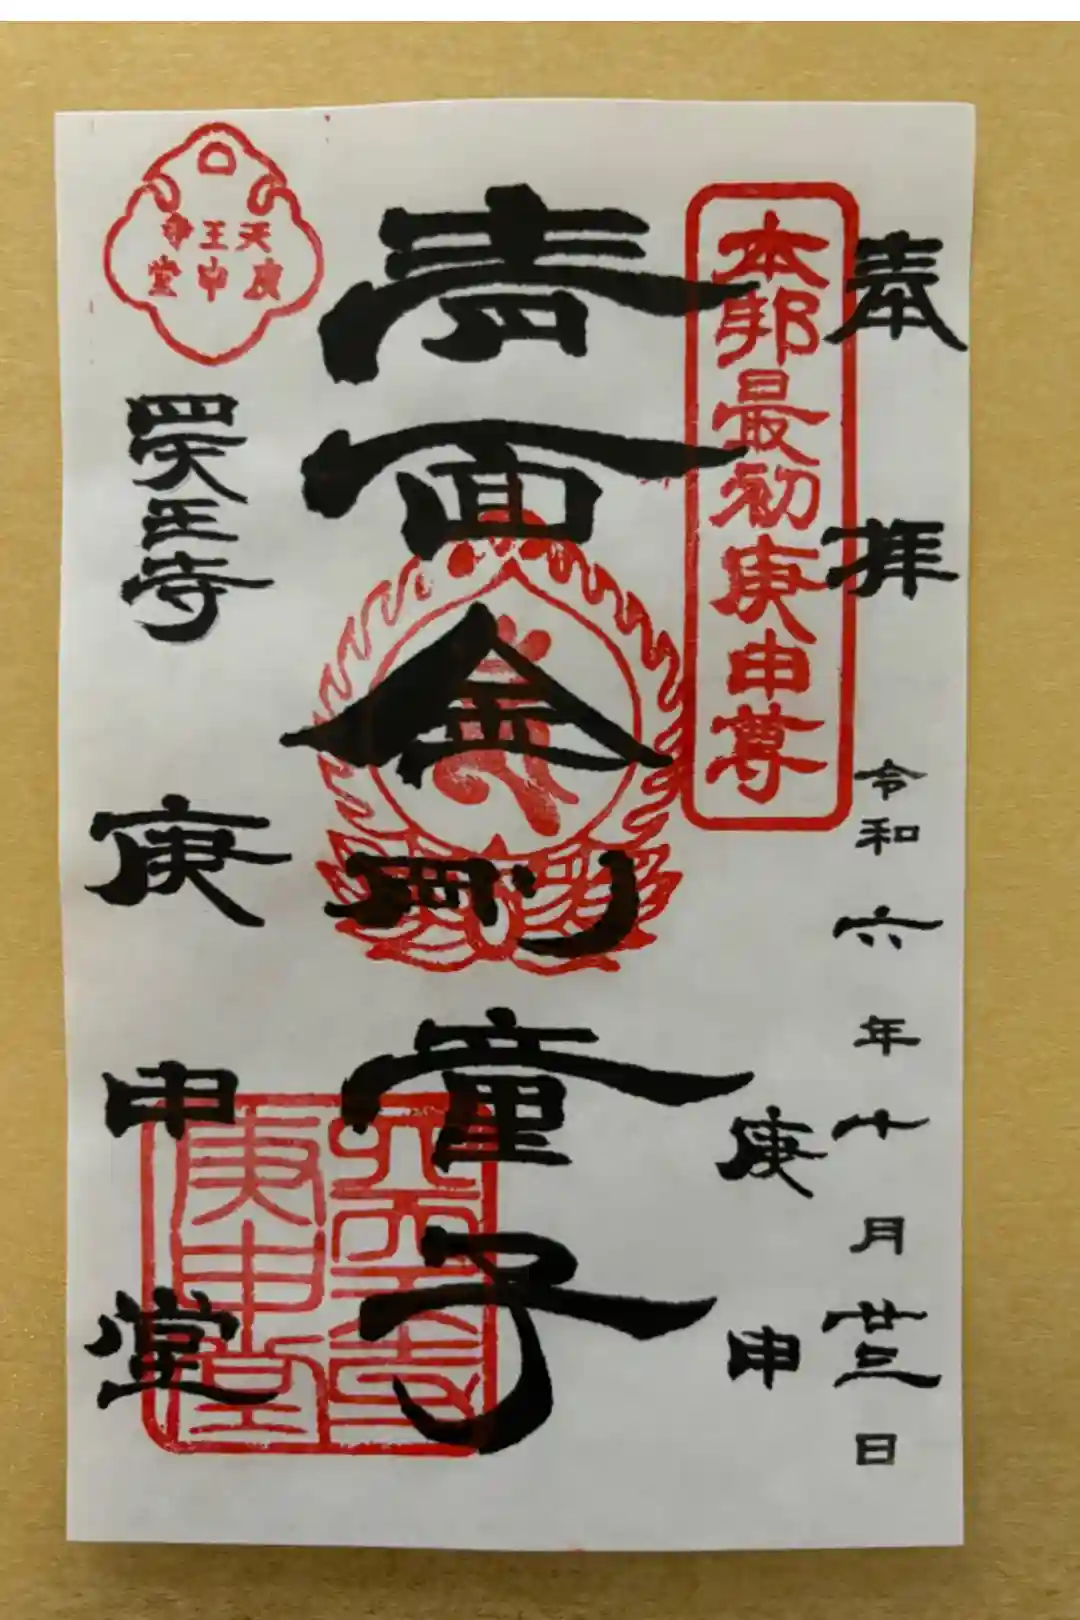 奉拝
令和六年十月廿三日
庚申
本邦最初庚申尊
青面金剛童子
天王寺
庚申堂
四天王寺
庚申堂
四天王寺
庚申堂